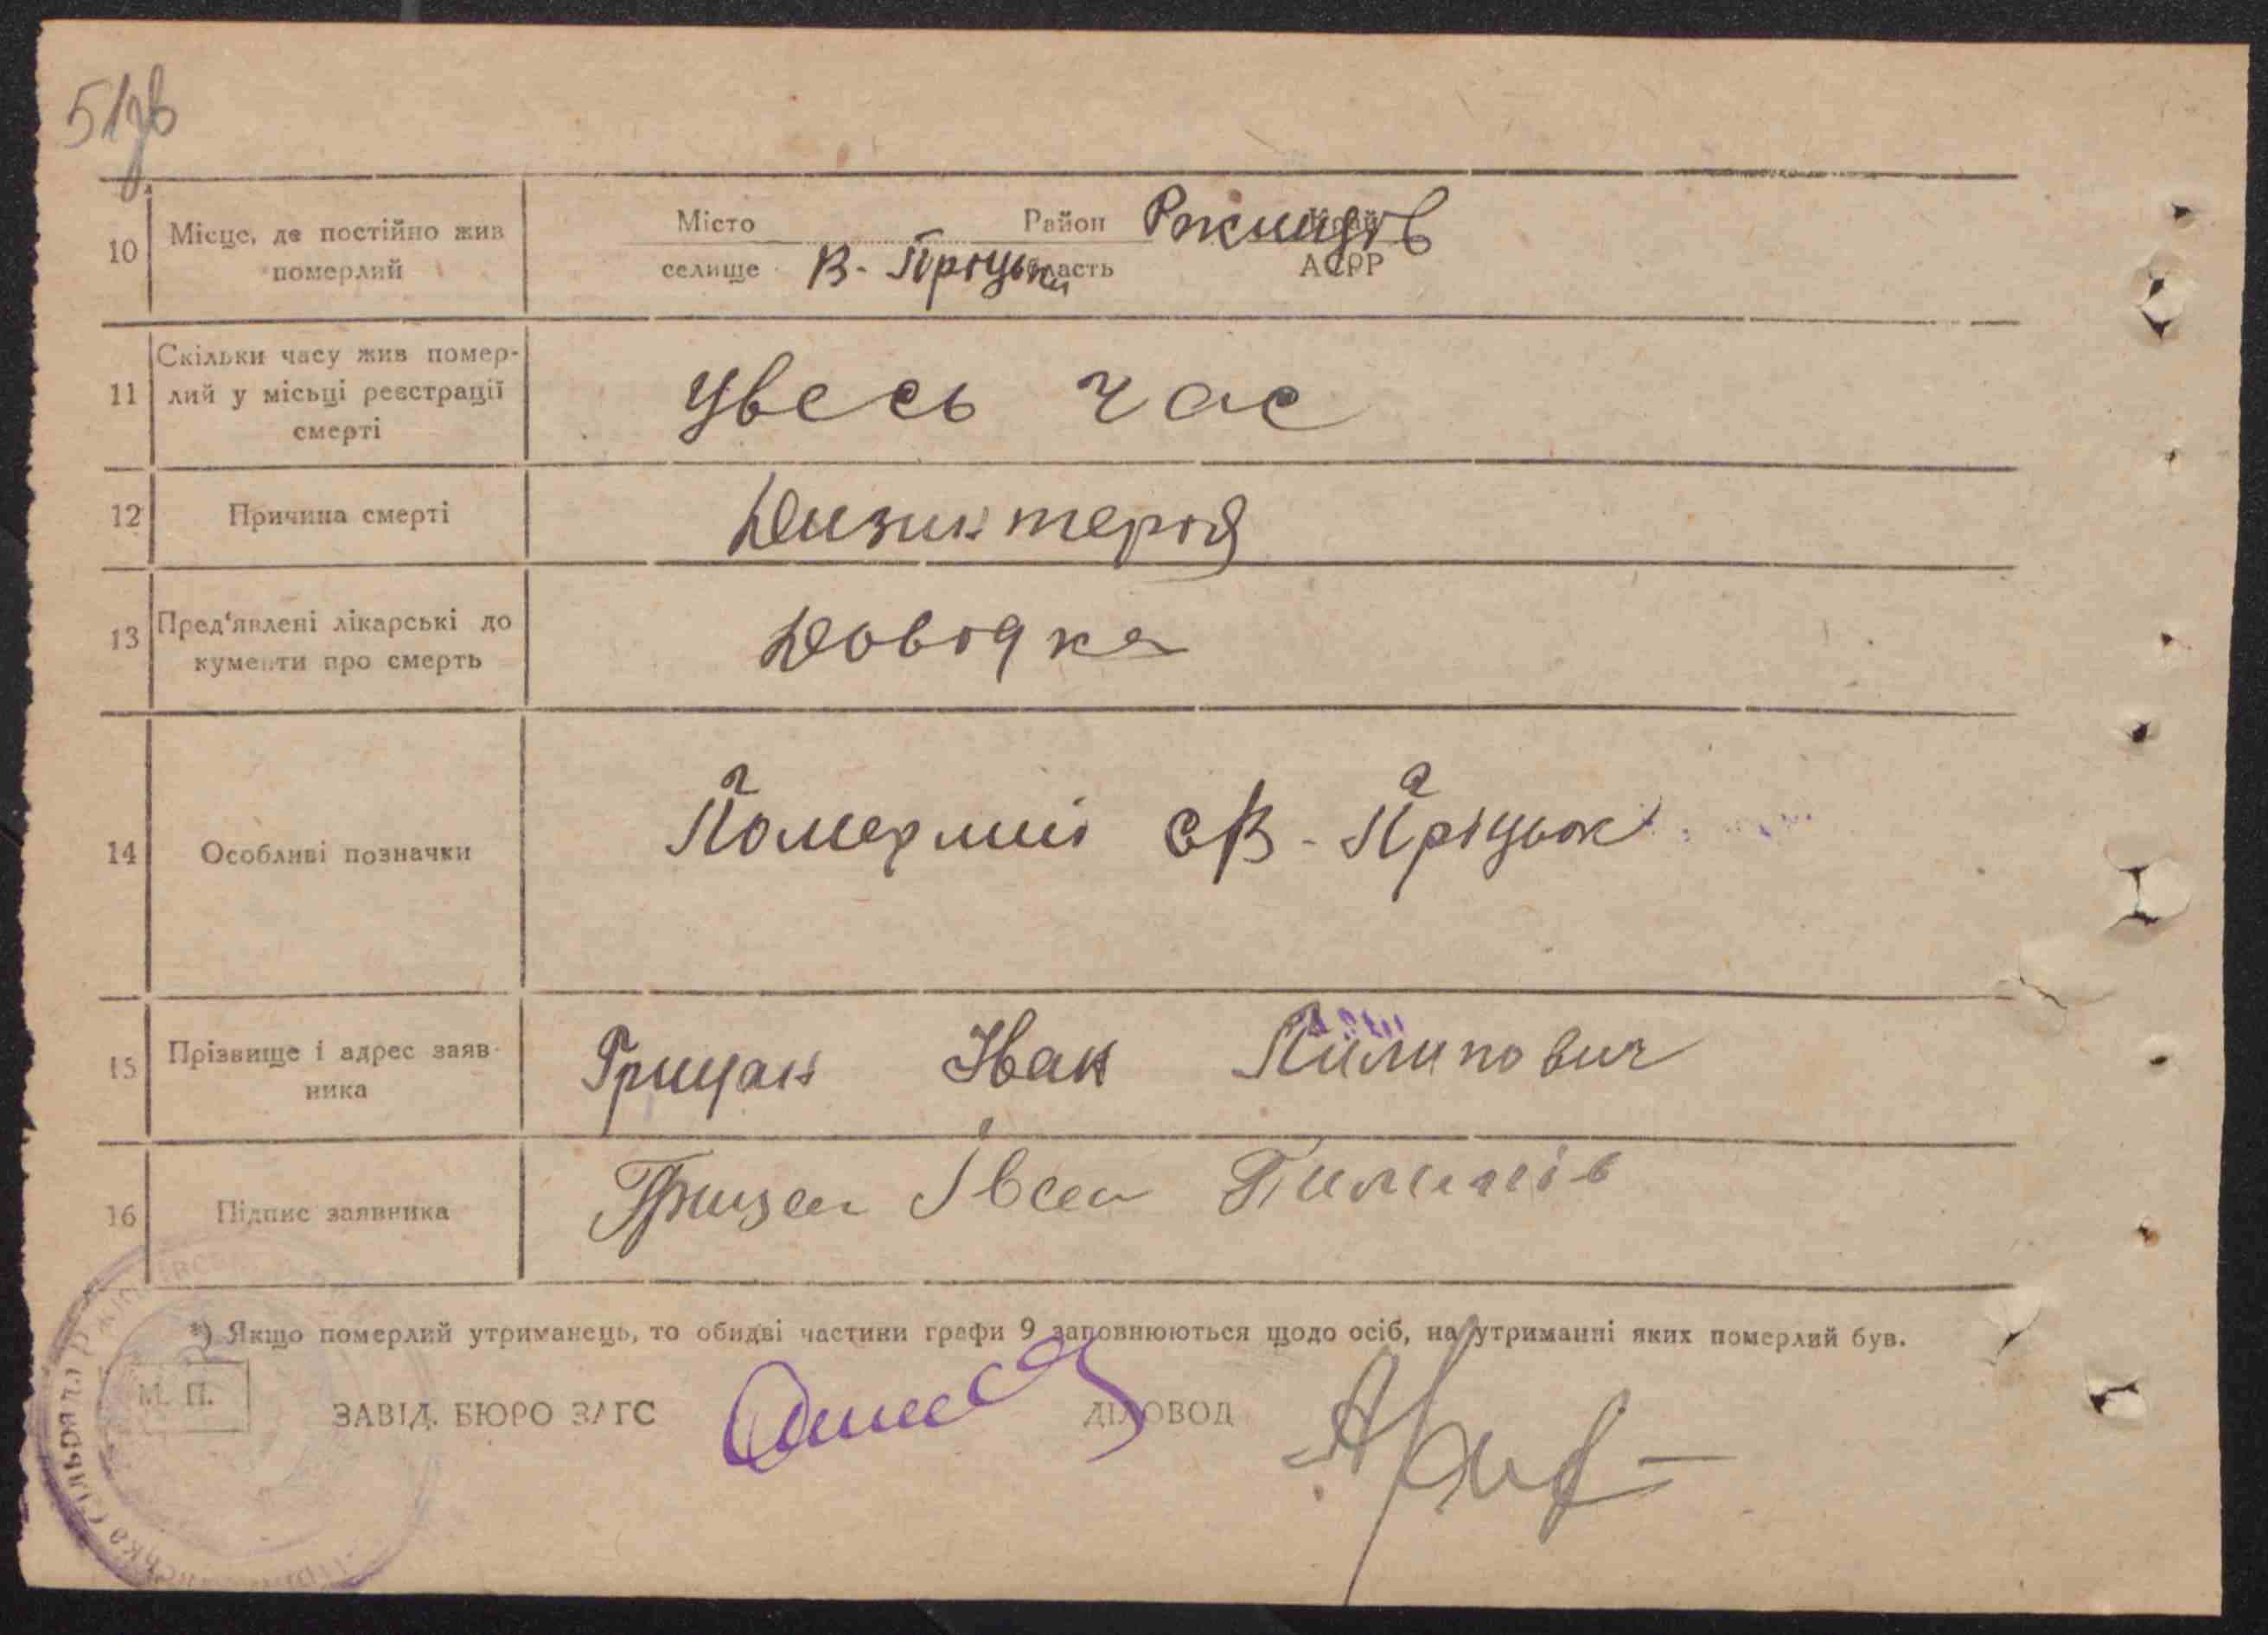 10 Місце, де постійно жив померлий
Місто Район Рокищів Край
селище В-Пріцьки Область АСРР
11 Скільки часу жив помер-
лий у місьці реєстрації
смерті
увесь час
12 Причина смерті
Дизинтерія
13 Пред'явлені лікарські до
кументи про смерть
Довідка
14 Особливі позначки
Померлий с В-Пріцьк
15 Прізвище і адрес заяв-
ника
Грицан Іван Пилипович
16 Підпис заявника
Грицан Іван Пилипів
*) Якщо померлий утриманець, то обидві частини графи 9 заповнюються щодо осіб, на утриманні яких померлий був.
М. П.
ЗАВІД. БЮРО ЗАГС ДІЛОВОД